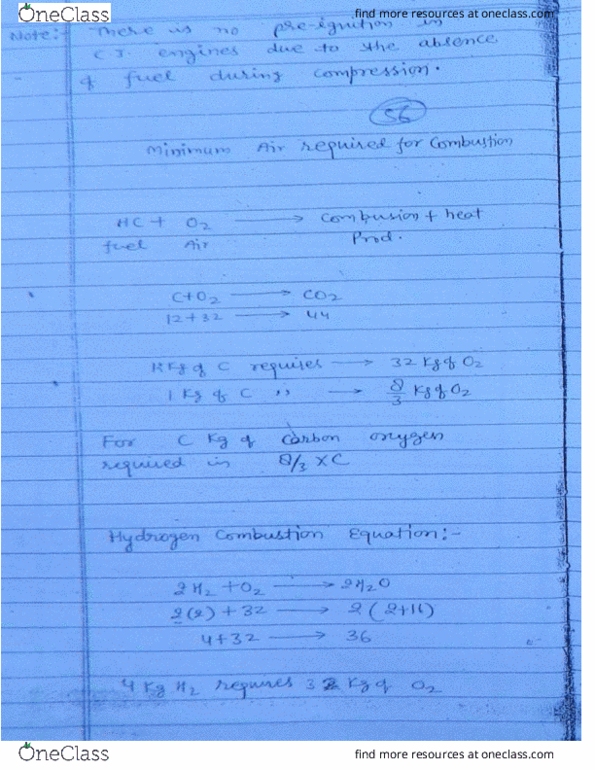 OneClass
find more resources at oneclass.com
Note:- There is no pre-ignition in
C.I. engines due to the absence
of fuel during compression.
56
Minimum Air required for Combustion
HC + O2 → Combusion + heat
fuel Air Prod.
C+O2 → CO2
12+32 → 44
12 Kg of C requires → 32 Kg of O2
1 Kg of C ,, → 8/3 Kg of O2
For C Kg of carbon oxygen
required is 8/3 XC
Hydrogen Combustion Equation:-
2H2 + O2 → 2H2O
2(2) + 32 → 2(2+16)
4+32 → 36
4 Kg H2 requires 32 Kg of O2
OneClass
find more resources at oneclass.com